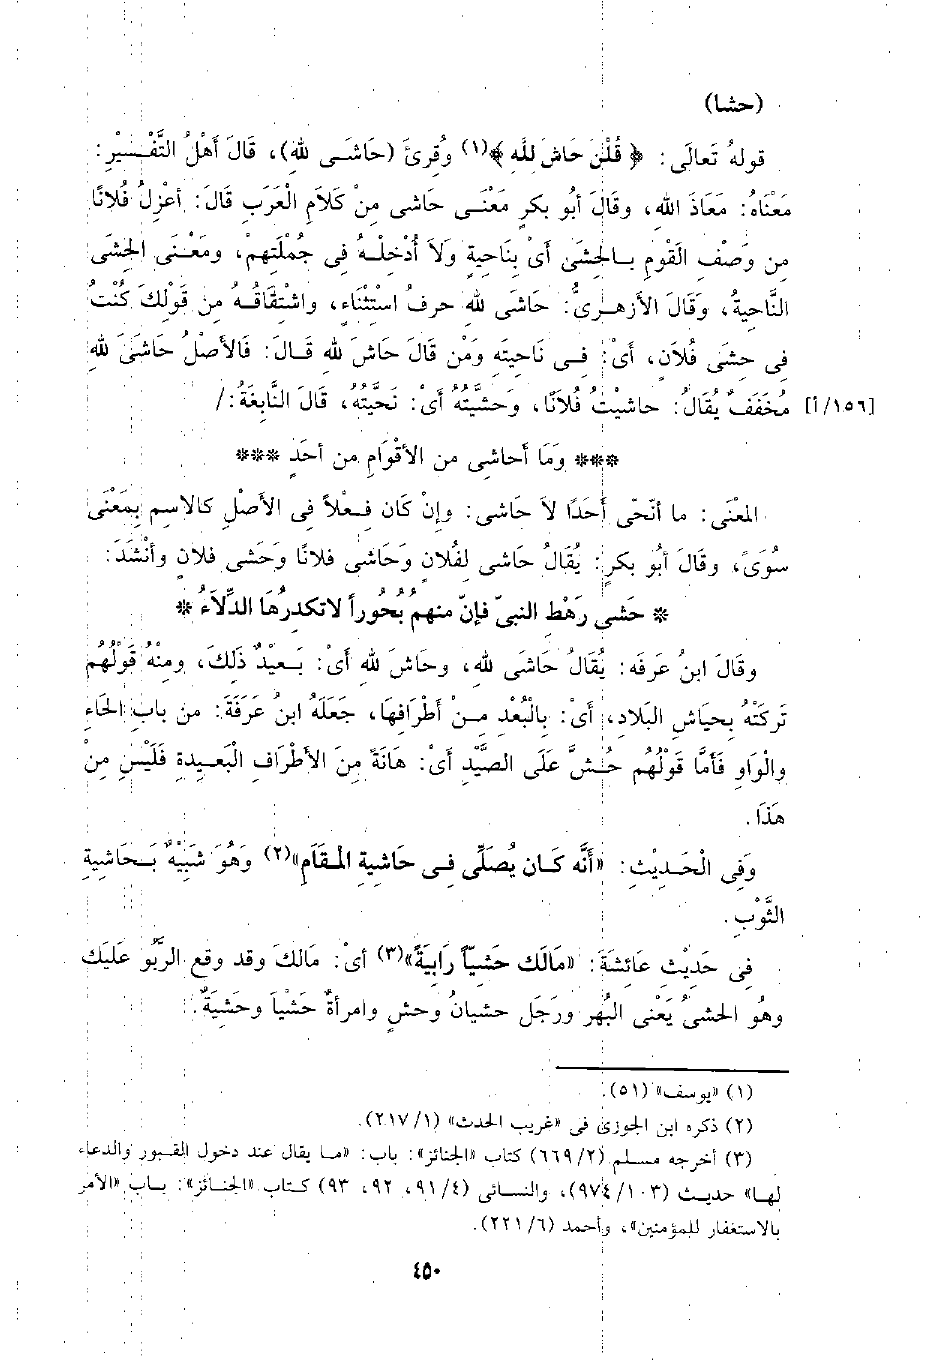 (حشا)
قولهُ تَعالَى: ﴿ قُلْنَ حَاشَ لِلَّهِ ﴾(١) وقُرِئَ (حَاشَى لله)، قَالَ أَهْلُ التَّفْسِيْرِ:
مَعْنَاهُ: مَعَاذَ الله، وقَالَ أبُو بكرٍ مَعْنَى حاشى مِنْ كَلَامِ الْعَرَبِ قَالَ: أعْزِلُ فُلانًا
مِن وَصْفِ القَوْمِ بالحِشَى أىْ بِنَاحِيةٍ ولَا أُدْخِلْهُ فِى جُمْلَتِهِمْ، ومَعْنَى الحِشَى
النَّاحِيةُ، وَقَالَ الأزْهَرِىُّ: حَاشَى للهِ حرفُ اسْتِثْنَاءِ، واشْتِقَاقُهُ مِن قَوْلكَ كُنْتُ
فِى حشَى فُلَانٍ، أىْ: فِى نَاحيتِه ومَنْ قَالَ حَاشَ للهِ قَالَ: فَالأصْلُ حَاشَىَ للهِ
مُخَفَفٌ يُقَالُ: حاشيتُ فُلَانًا، وَحَشيَّتُهُ أىْ: نَحيَّتُهُ، قَالَ النَّابِغَةُ:/ [١٥٦/أ]
*** وَمَا أحاشِى من الأقْوَامِ مِن أحَدِ ***
المعْنَى: ما أنّحّى أحَدًا لاَ حَاشى: وإنْ كَان فِعْلاً فِى الأصْلِ كالاسمِ بِمَعْنَى
سُوَىً، وقَالَ أبُو بكرٍ: يُقَالُ حَاشى لفُلَانٍ وَحَاشِى فلانًا وَحَشى فلان وأنْشَدَ:
* حَشى رَهْط النبىّ فإنّ منهمُ بُحُوراً لا تكدرُهَا الدِّلَاءُ *
وقَالَ ابنُ عَرفَه: يُقَالُ حَاشَى لله، وحاشَ لله أىْ: بَعيْدٌ ذَلكَ، ومِنْهُ قَوْلُهُم
تَركَتْهُ بِحياشِ البَلادِ، أىْ: بالْبُعْدِ مِنْ أطْرَافِهَا، جَعَلَهُ ابنُ عَرَفَةَ: من بابِ الحَاءِ
والْوَاوِ فَأمَّا قَوْلُهُم حُشْ عَلَى الصَّيْدِ أىْ: هَانَةً مِنَ الأطْرَافِ الْبَعيدةِ فَلَيْسَ مِنْ
هَذَا.
وَفِى الْحَدِيْثِ: «أنَّه كَان يُصَلِّى فِى حَاشِيةِ المَقَامِ»(٢) وَهُوَ شَبِيْهٌ بَحَاشِيةِ
الثَّوْبِ.
فِى حَدِيْثِ عَائشَةَ: «مَالَك حَشيَاً رَابيَةً»(٣) أىْ: مَالكَ وقد وقع الرَبُّو عَلَيك
وهُو الحشىُ يَعْنِى البُهْر ورَجَل حشيانُ وحشٍ وامرأةٌ حَشْيَا وحَشيَةٌ.
(١) «يوسف» (٥١).
(٢) ذكره ابن الجوزى فى «غريب الحدث» (٢١٧/١).
(٣) أخرجه مسلم (٦٦٩/٢) كتاب «الجنائز»: باب: «ما يقال عند دخول القبور والدعاء
لها» حديث (٩٧٤/١٠٣)، والنسائى (٩١/٤، ٩٢، ٩٣) كتاب «الجنائز»: باب «الأمر
بالاستغفار للمؤمنين»، وأحمد (٢٢١/٦).
٤٥٠